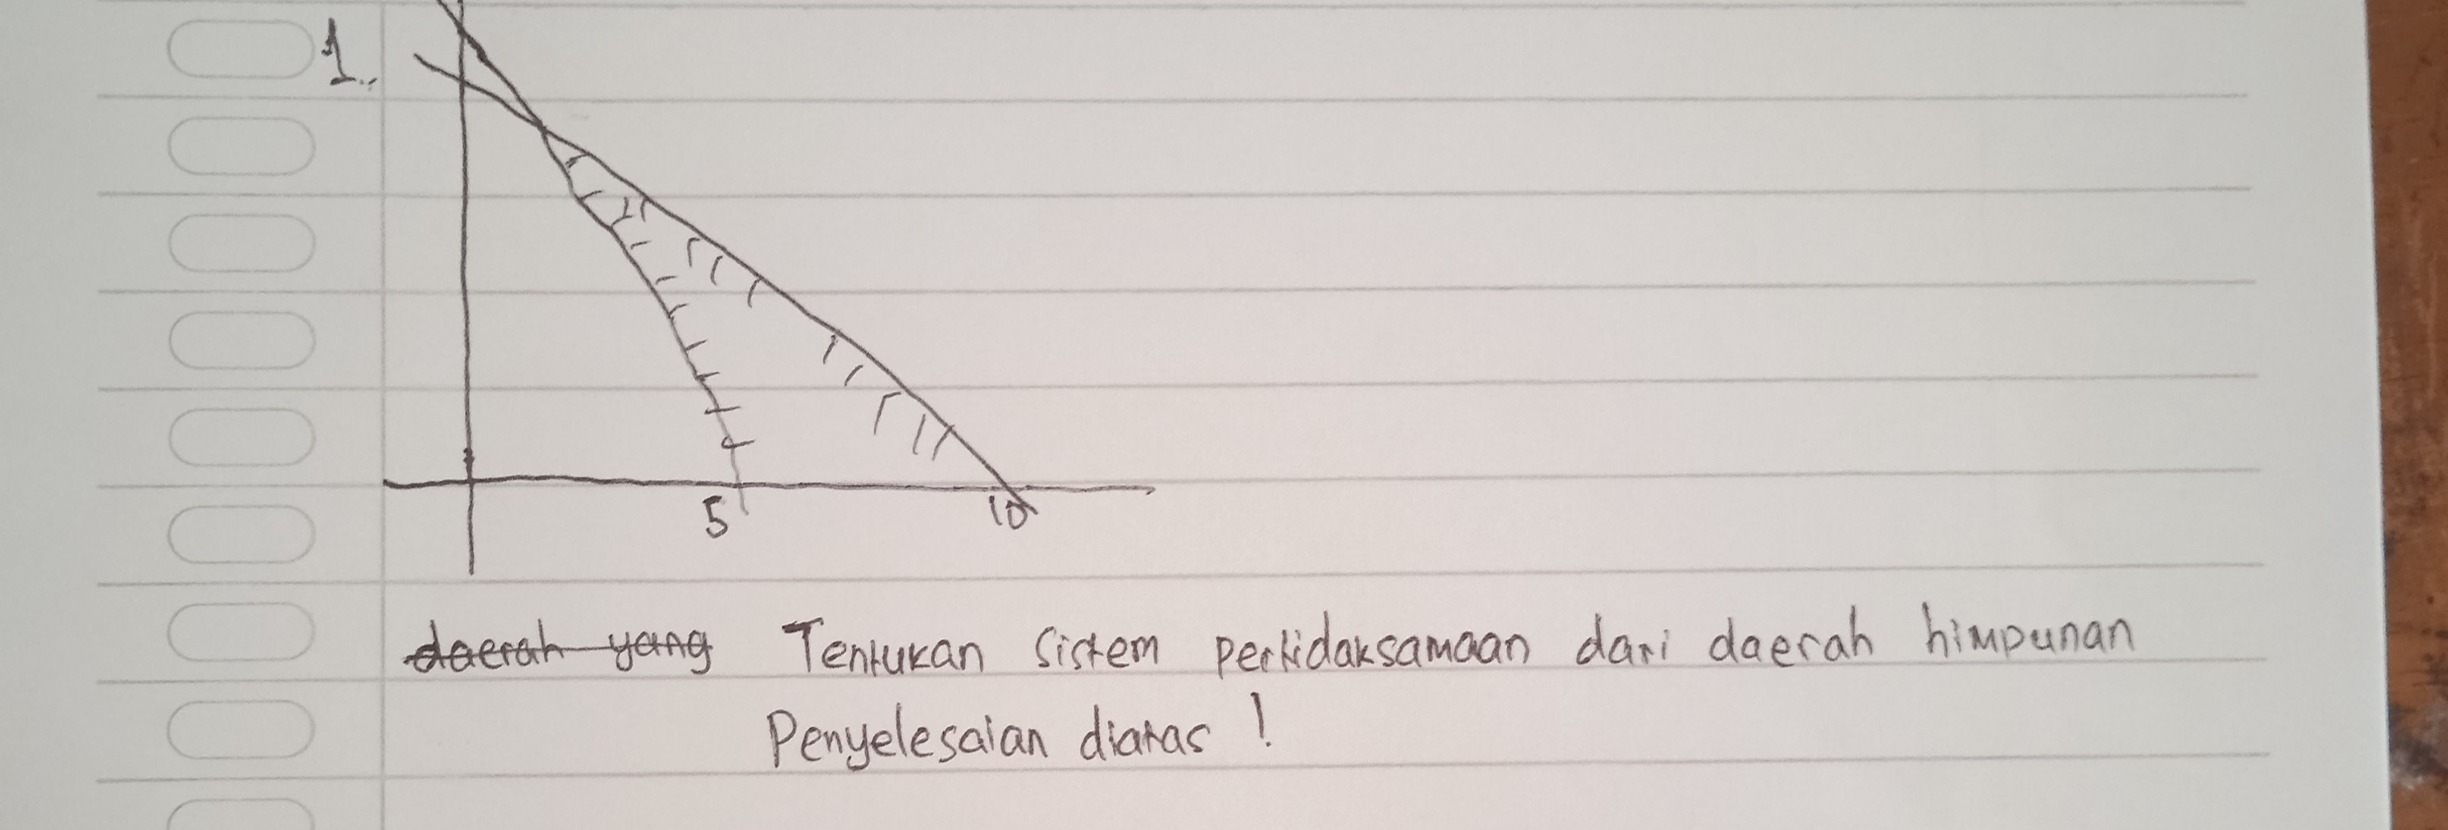 1.
5 10
daerah yang Tentukan sistem pertidaksamaan dari daerah himpunan
Penyelesaian diatas !